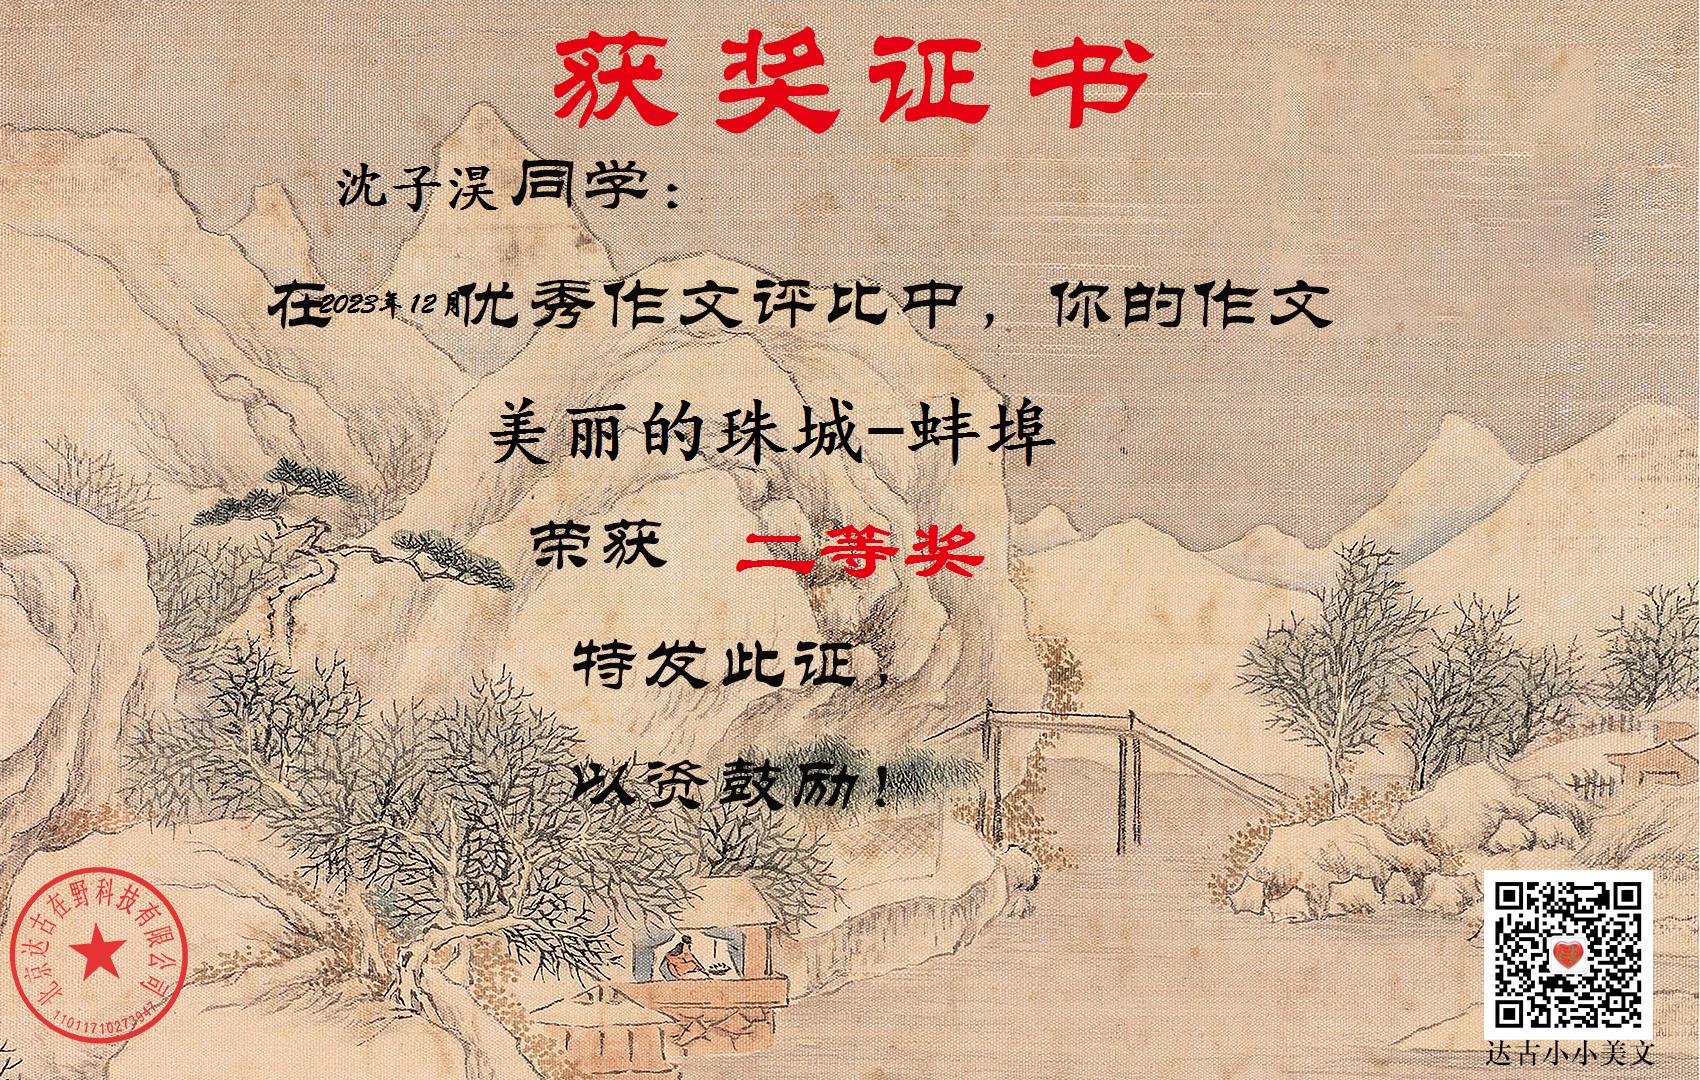 获奖证书
沈子淏同学：
在2023年12月优秀作文评比中，你的作文
美丽的珠城-蚌埠
荣获 二等奖
特发此证，
以资鼓励！
北京达古在野科技有限公司
11011710273947
达古小小美文